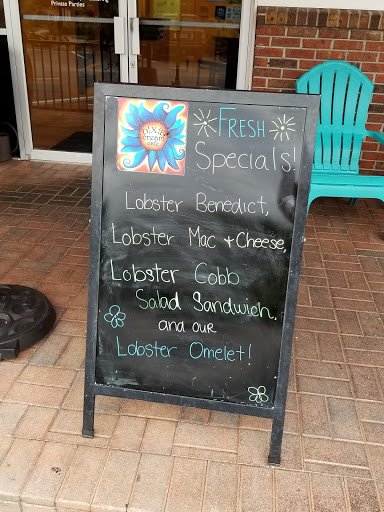 Private Parties
Cream
Cafe
FRESH
Specials!
Lobster Benedict,
Lobster Mac + Cheese,
Lobster Cobb
Salad Sandwich.
and our
Lobster Omelet!